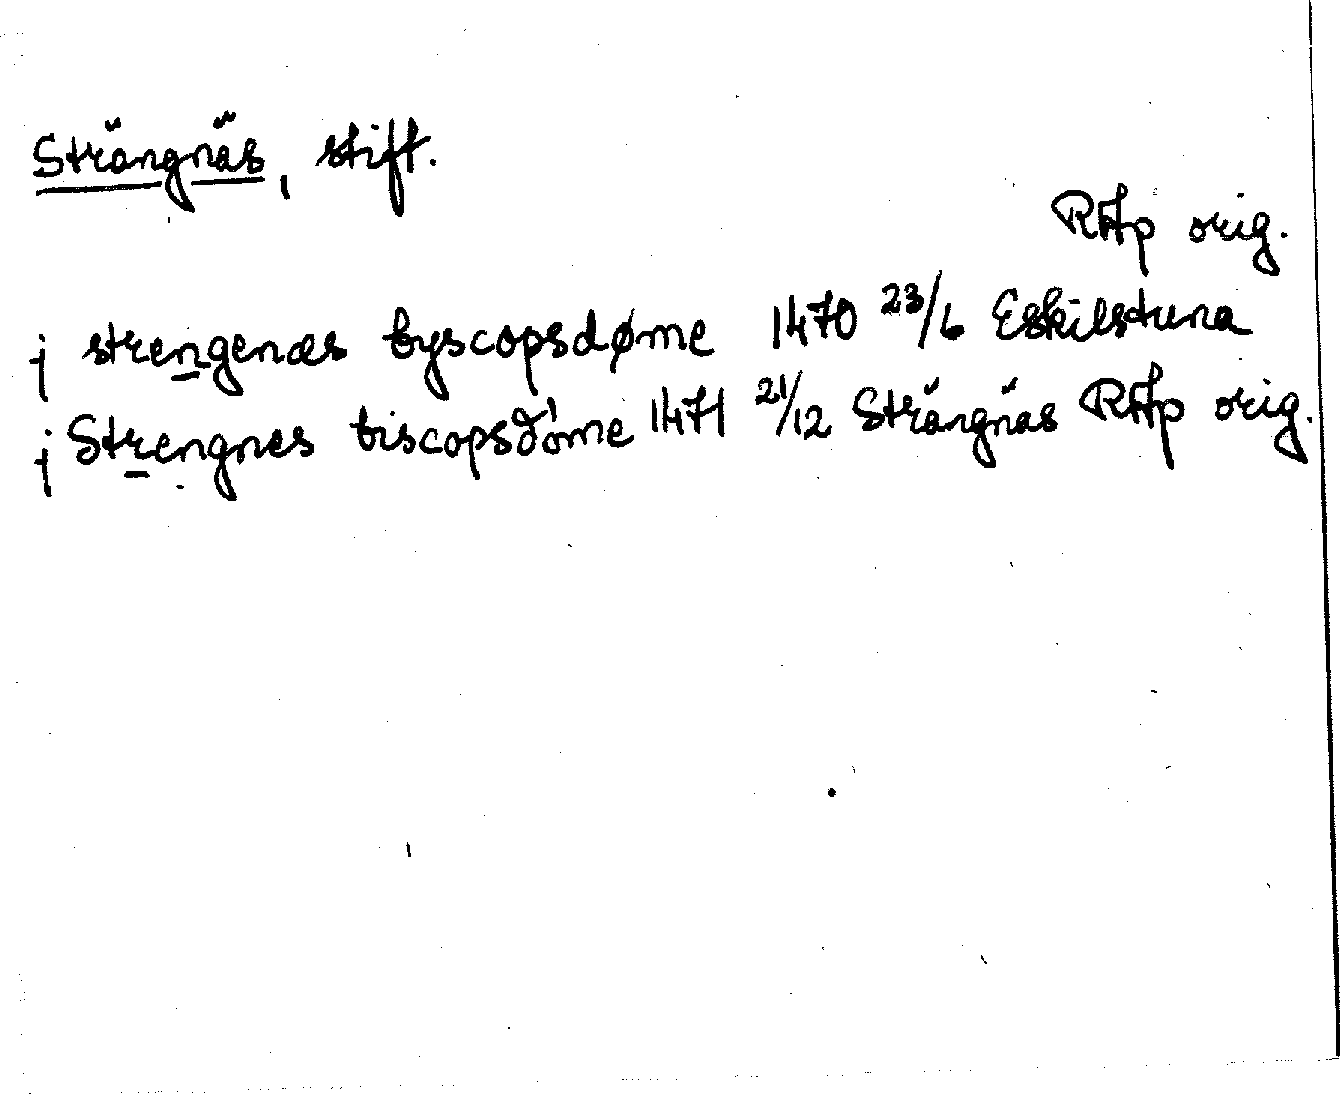 Strängnäs, stift.
RAp orig.
j strengenæs byscopsdøme 1470 23/6 Eskilstuna
j Strengnes biscopsdóme 1471 21/12 Strängnäs RAp orig.